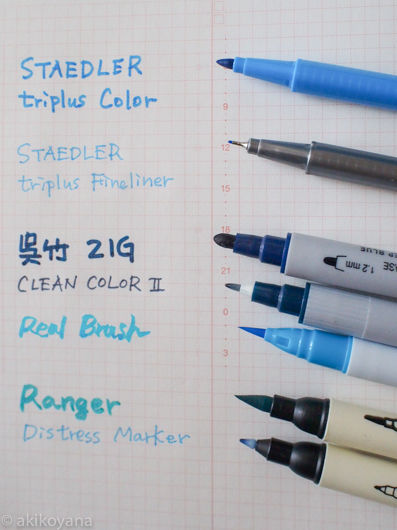 STAEDLER
triplus Color
9
STAEDLER
12
triplus Fineliner
15
18
呉竹 ZIG
21
CLEAN COLOR II
1.2 mm
0
Real Brush
3
Ranger
Distress Marker
© akikoyana